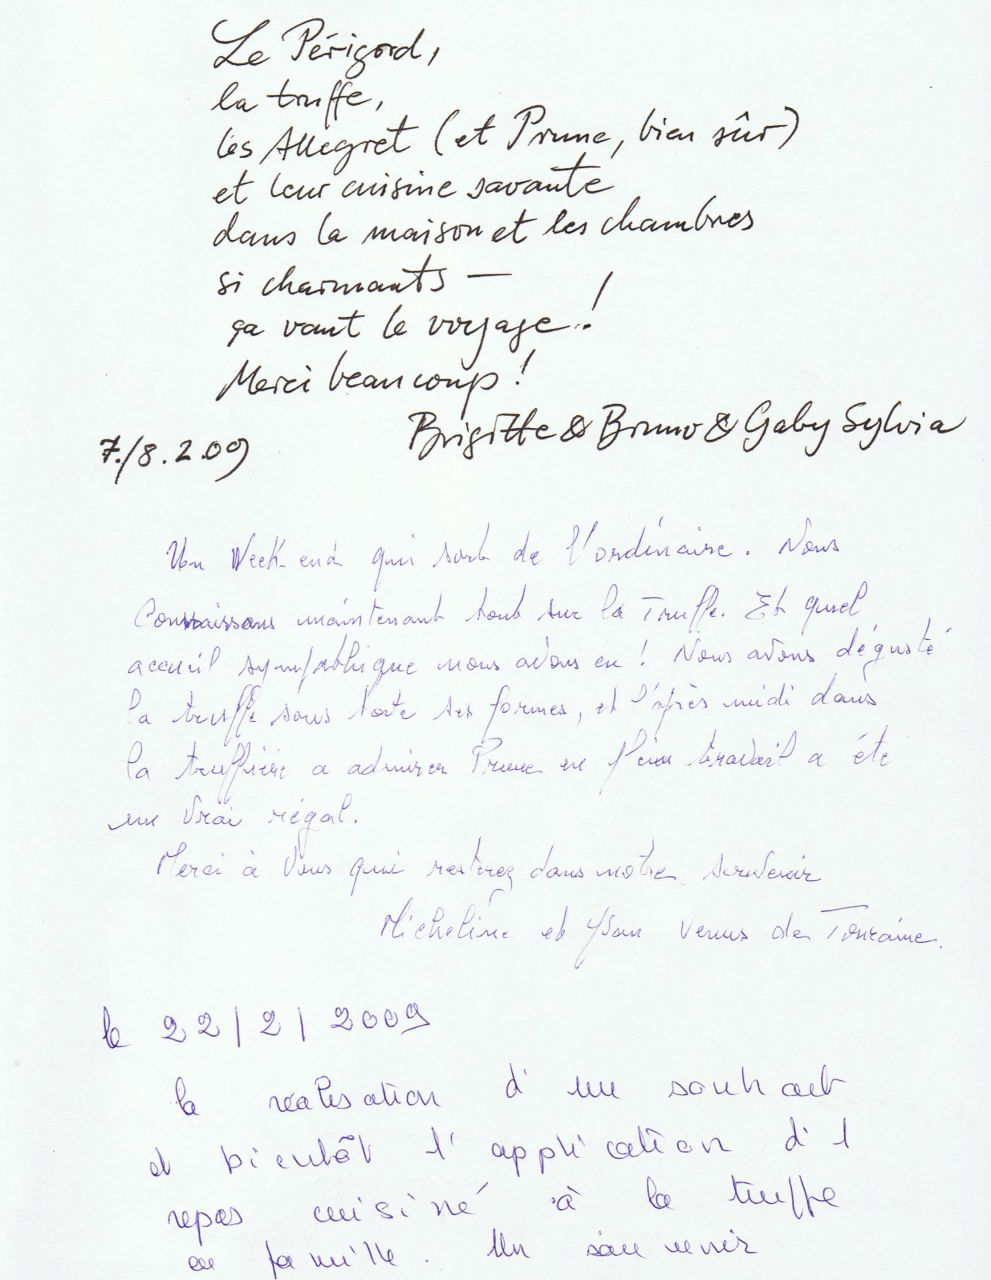 Le Périgord,
la truffe,
les Allegret (et Prune, bien sûr)
et leur cuisine savante
dans la maison et les chambres
si charmants —
ça vaut le voyage !
Merci beaucoup !
Brigitte & Bruno & Gaby Sylvia
7./8.2.09
Un Week-end qui sort de l'ordinaire. Nous
Connaissons maintenant tout sur la Truffe. Et quel
accueil sympathique nous avons eu ! Nous avons dégusté
la truffe sous toute ses formes, et l'après midi dans
la truffière a admirer Prune en plein travail a été
un vrai régal.
Merci à Vous qui resterez dans notre souvenir
Micheline et Yvan Venus de Touraine.
le 22/2/2009
la réalisation d'un souhait
et bientôt l'application d'1
repas cuisiné à la truffe
en famille. Un souvenir